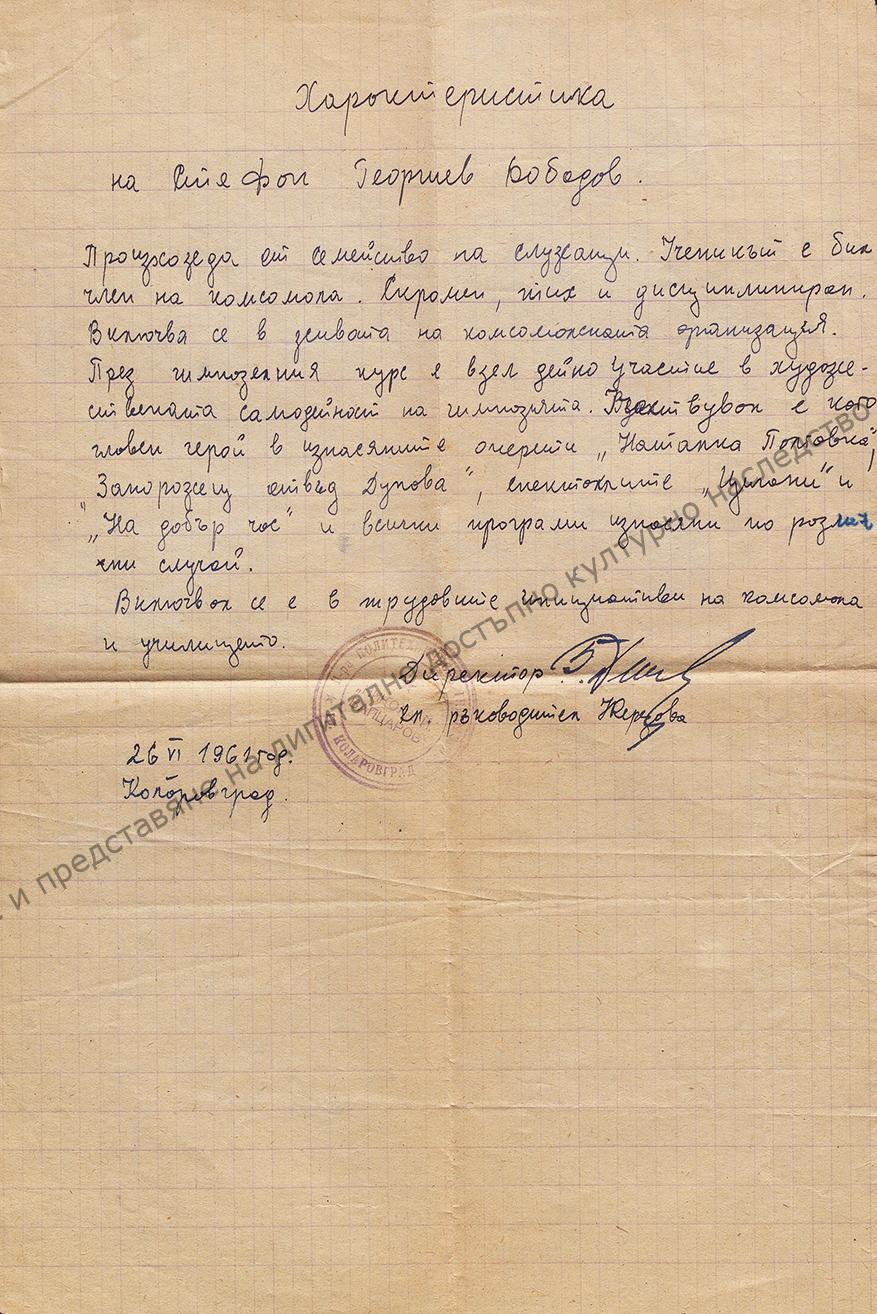 Характеристика
на Стефан Георгиев
Произхожда от семейство на служащи. Ученикът е бил
член на комсомола. Скромен, тих и дисциплиниран.
Включва се в живота на комсомолската организация.
През гимназения курс е взел дейно участие в художе-
ствената самодейност на гимназията. е като
главен герой в изнасяните оперети „Наталка Полтавка",
„Запорожец отвъд Дунава", спектаклите „Цигани" и
„На добър час" и всички програми изнасяни по различ
ни случай.
Включвал се е в трудовите инициативи на комсомола
и училището.
Директор
Кл. ръководител
26 VI 1961 год.
Коларовград.
ПОЛИТЕХ
ВАПЦАРОВ
КОЛАРОВГРАД
и представяне на дигитално достъпно културно наследство